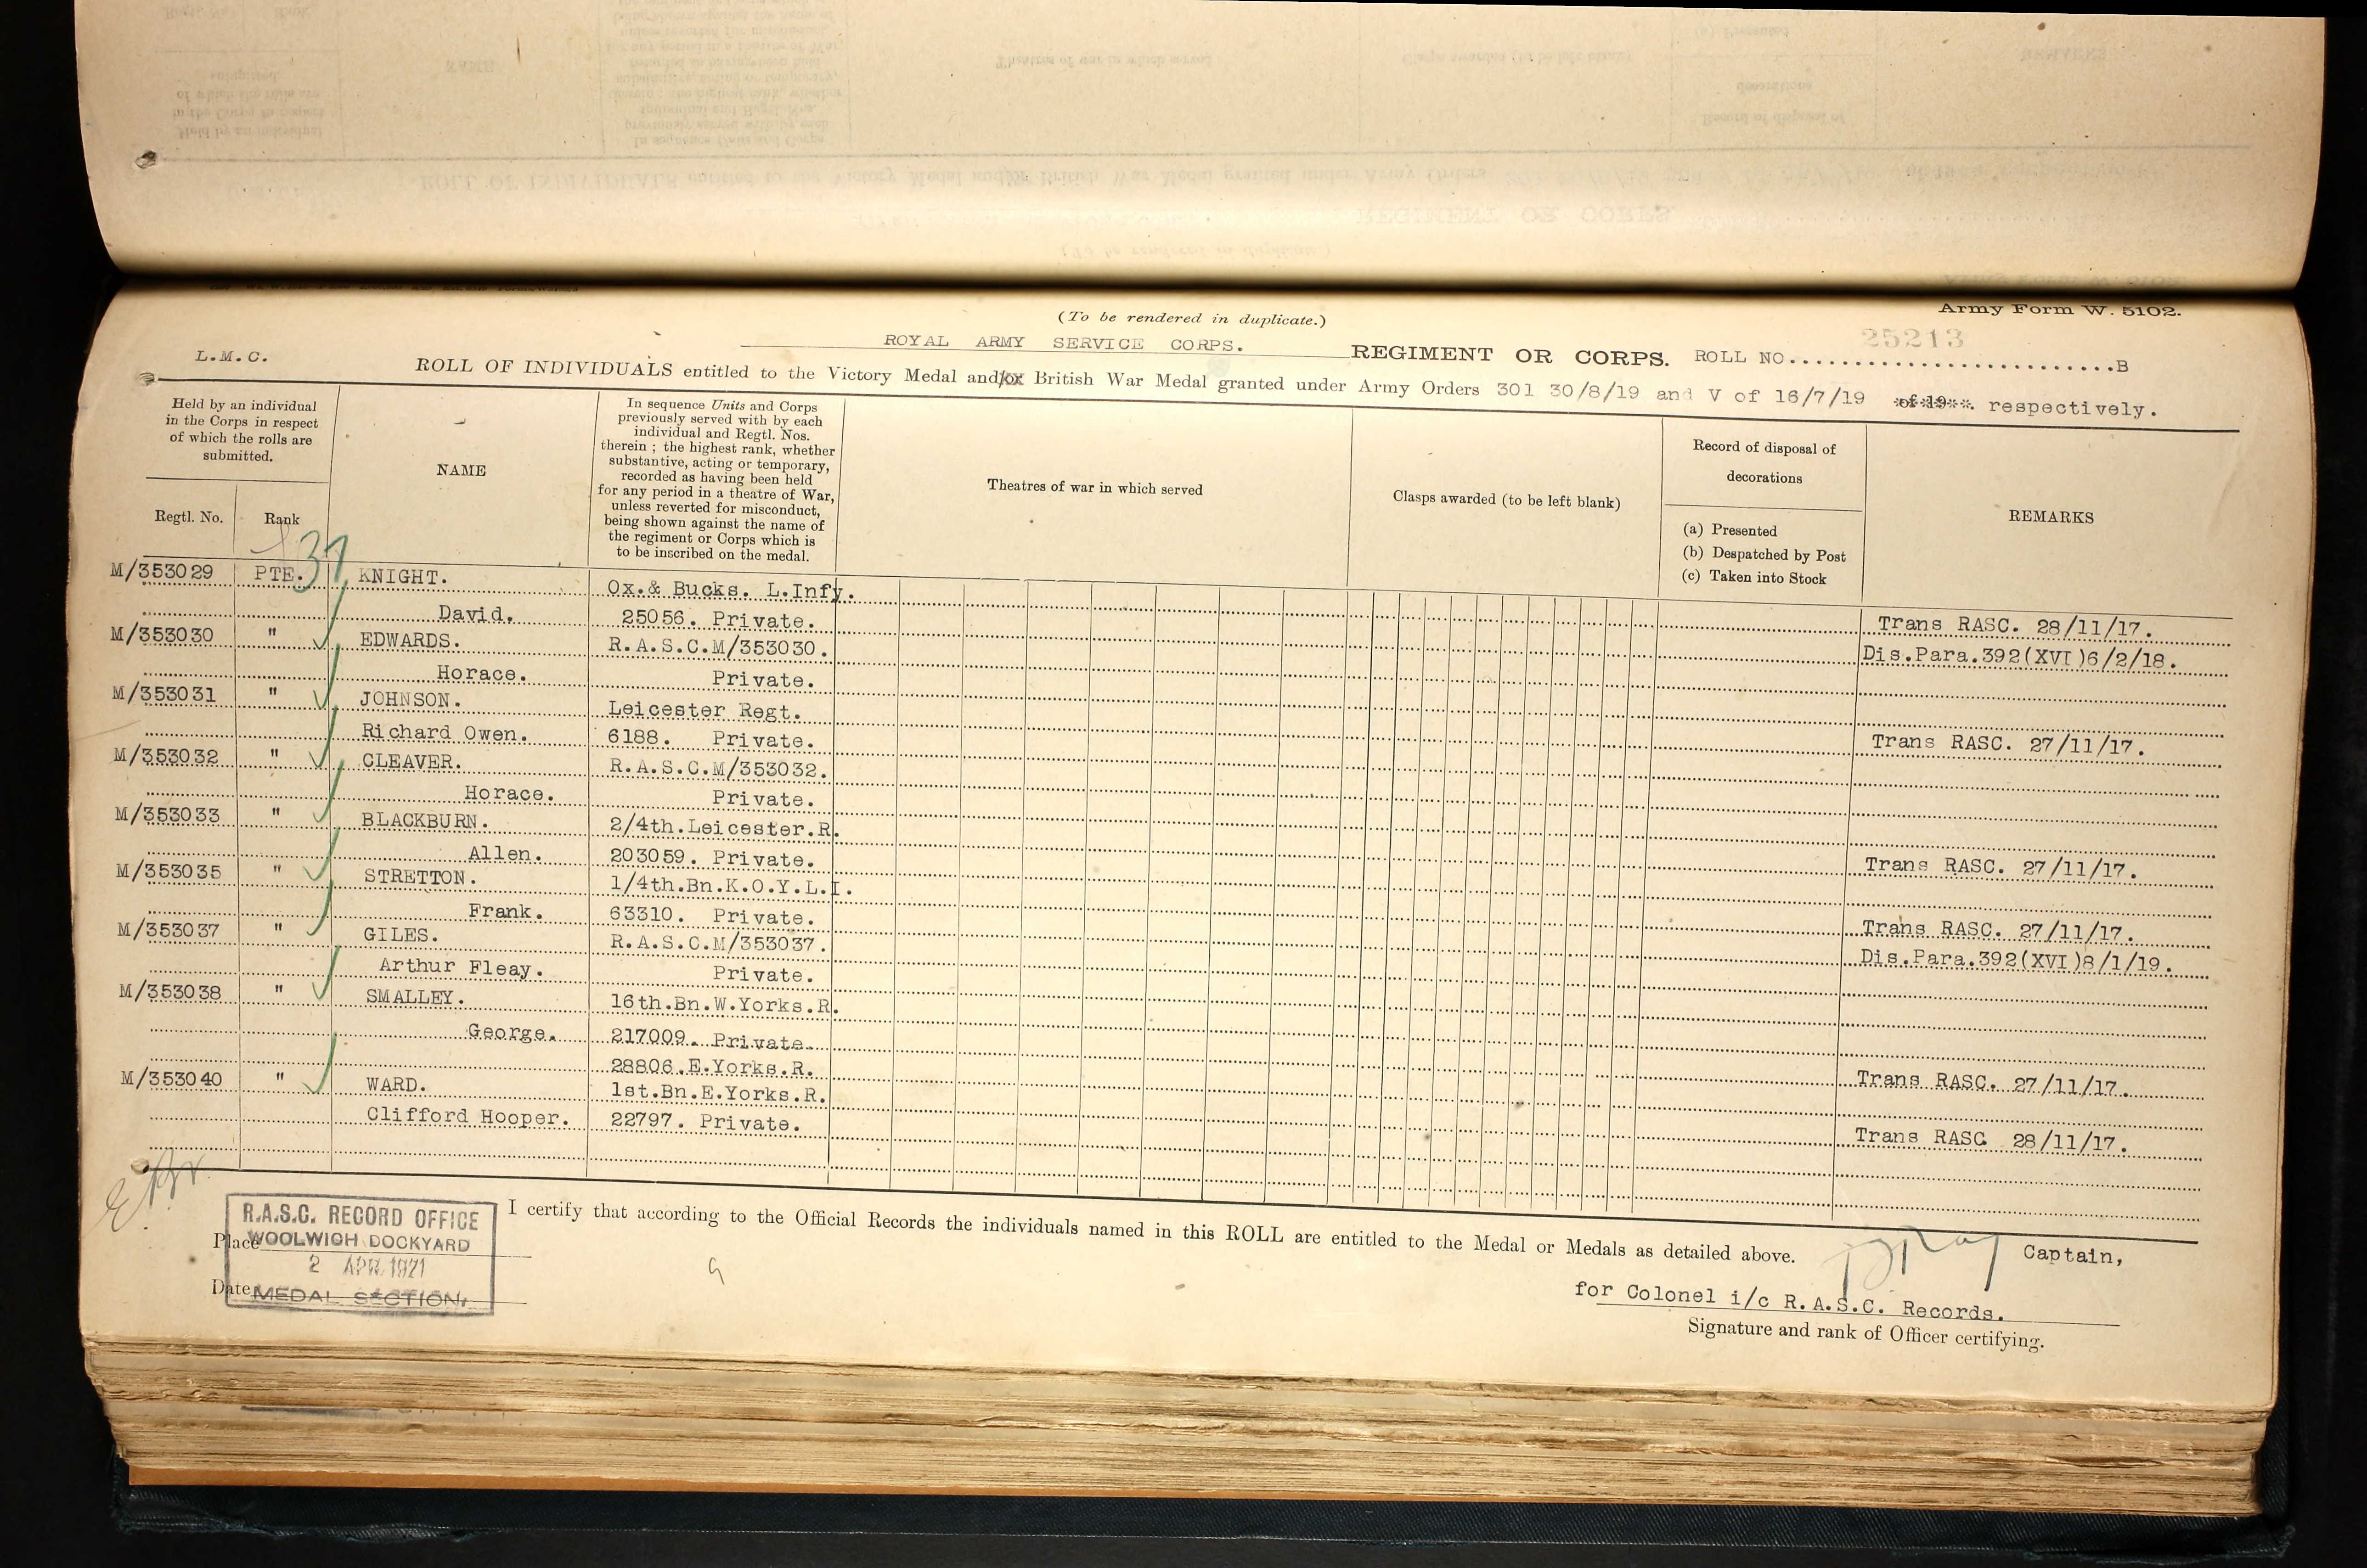 Army Form W. 5102.
(To be rendered in duplicate.)
25213
L.M.C.
ROYAL ARMY SERVICE CORPS. REGIMENT OR CORPS. ROLL NO..........................B
ROLL OF INDIVIDUALS entitled to the Victory Medal and/or British War Medal granted under Army Orders 301 30/8/19 and V of 16/7/19 of 19 respectively.
Held by an individual
in the Corps in respect
of which the rolls are
submitted.
Regtl. No.
Rank
NAME
In sequence Units and Corps
previously served with by each
individual and Regtl. Nos.
therein ; the highest rank, whether
substantive, acting or temporary,
recorded as having been held
for any period in a theatre of War,
unless reverted for misconduct,
being shown against the name of
the regiment or Corps which is
to be inscribed on the medal.
Theatres of war in which served
Clasps awarded (to be left blank)
Record of disposal of
decorations
(a) Presented
(b) Despatched by Post
(c) Taken into Stock
REMARKS
37
M/353029 PTE. KNIGHT. Ox.& Bucks. L.Infy.
David. 25056. Private. Trans RASC. 28/11/17.
M/353030 " EDWARDS. R.A.S.C.M/353030. Dis.Para.392(XVI)6/2/18.
Horace. Private.
M/353031 " JOHNSON. Leicester Regt.
Richard Owen. 6188. Private. Trans RASC. 27/11/17.
M/353032 " CLEAVER. R.A.S.C.M/353032.
Horace. Private.
M/353033 " BLACKBURN. 2/4th.Leicester.R.
Allen. 203059. Private. Trans RASC. 27/11/17.
M/353035 " STRETTON. 1/4th.Bn.K.O.Y.L.I.
Frank. 63310. Private. Trans RASC. 27/11/17.
M/353037 " GILES. R.A.S.C.M/353037. Dis.Para.392(XVI)8/1/19.
Arthur Fleay. Private.
M/353038 " SMALLEY. 16th.Bn.W.Yorks.R.
George. 217009. Private.
28806.E.Yorks.R. Trans RASC. 27/11/17.
M/353040 " WARD. 1st.Bn.E.Yorks.R.
Clifford Hooper. 22797. Private. Trans RASC 28/11/17.
I certify that according to the Official Records the individuals named in this ROLL are entitled to the Medal or Medals as detailed above.
R.A.S.C. RECORD OFFICE
Place WOOLWICH DOCKYARD
2 APR 1921
Date MEDAL SECTION.
Captain,
for Colonel i/c R.A.S.C. Records.
Signature and rank of Officer certifying.